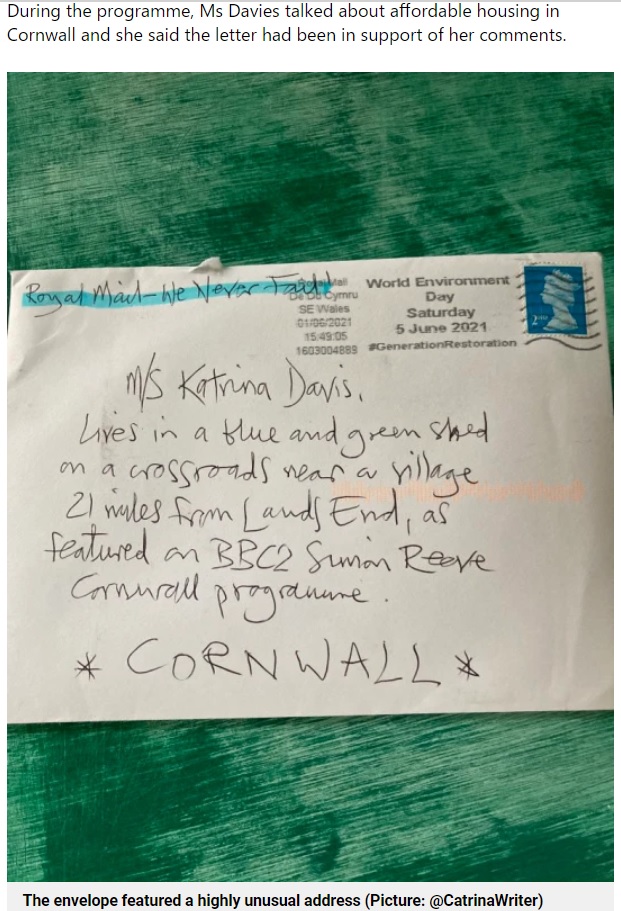 During the programme, Ms Davies talked about affordable housing in
Cornwall and she said the letter had been in support of her comments.
Royal Mail-We Never Fail!
Royal Mail
De De Cymru
SE Wales
01/06/2021
15:49:05
1603004889
World Environment
Day
Saturday
5 June 2021
#GenerationRestoration
2nd
M/S Katrina Davis,
Lives in a blue and green shed
on a crossroads near a village
21 miles from Lands End, as
featured on BBC2 Simon Reeve
Cornwall programme.
* CORNWALL *
The envelope featured a highly unusual address (Picture: @CatrinaWriter)